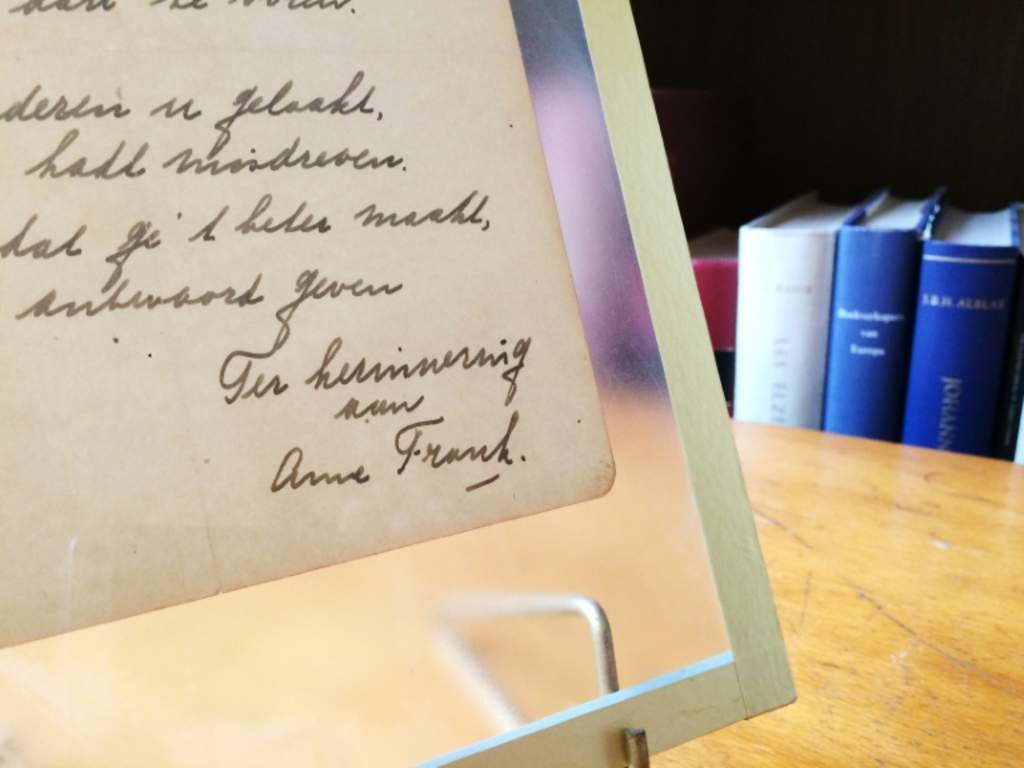 deren u gelaakt,
hadt misdreven.
dat ge 't beter maakt,
antwoord geven
Ter herinnering
aan
Anne Frank.
Boekverkopers
van
Europa
J.B.H. ALBLAS
JOHANN